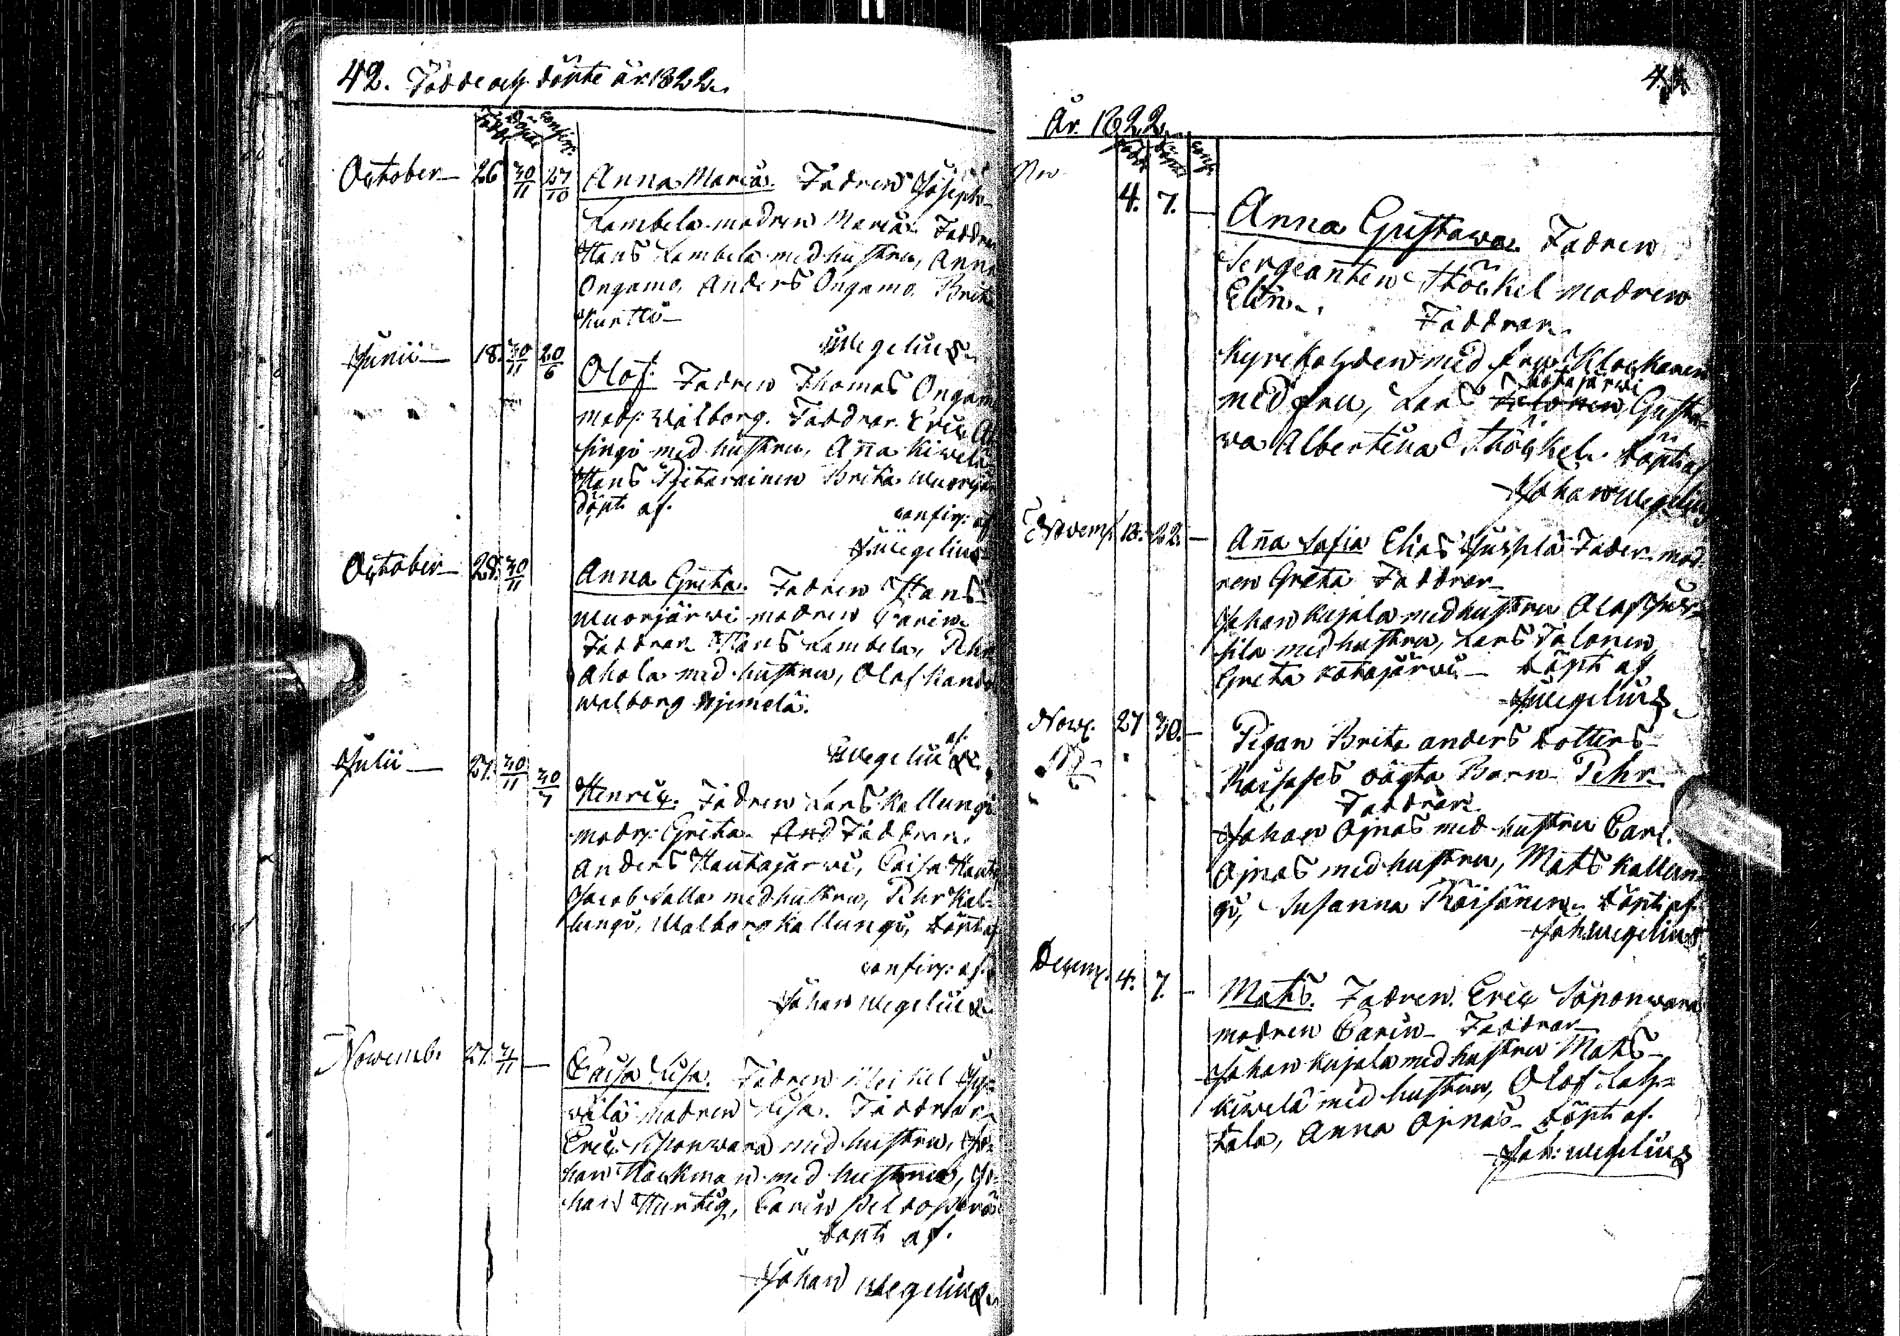 42. Födde och döpte år 1822.
Född Döpte Confir:
October 26 30/11 27/10 Anna Maria. Fadren Joseph
Lambela modren Maria. Faddrar
Hans Lambela med hustru, Anna
Ongamo, Anders Ongamo, Brita
Kurtti
J Wegelius
Junii 18. 30/11 20/6 Olof. Fadren Thomas Ongamo
modr: Walborg. Faddrar. Eric
med hustru, Anna Kiwelä
Hans Brita
döpt af. confir: af
J Wegelius
October 28. 30/11 Anna Greta. Fadren Hans
Muorjärvi modren Carin.
Faddrar Hans Lambela, Pehr
Ahola med hustru, Olof
Walborg
af.
J Wegelius
Julii 27. 30/11 30/7 Henric. Fadren Lars Kallungi
modr: Greta. Faddrar.
Anders Hautajärvi, Caisa
Jacob Salla med hustru, Pehr Kal-
lungi, Walborg Kallungi, döpt af
confir: af.
Johan Wegelius
Novemb. 27. /11 — Caisa Lisa. Fadren Michel
modren Lisa. Faddrar
Eric Soponwara med hustru, Jo-
han Hackman med hustru, Jo-
han Hurtig, Carin
döpt af.
Johan Wegelius
År 1822.
född döpte conf:
Nov 4. 7. — Anna Gustawa. Fadren
Sergeanten Stöckel modren
Elin. Faddrar.
Kyrkoherden med fru, Klockaren
Kotajärvi
med fru, Lars Gusta-
wa Albertina Stöckel. döpt af
Johan Wegelius
Novemb. 18. 22. — Anna Sofia Elias Juspila Fader. mod-
ren Greta Faddrar
Johan Kujala med hustru Olof Jus-
pila med hustru, Lars Talonen
Greta Kotajärvi — döpt af
J Wegelius
Nov. 27 30. — Pigan Brita anders dotters
oägta Barn Pehr.
Faddrar.
Johan Ojnas med hustru Carl
Ojnas med hustru, Mats Kallun-
gi, Susanna Räisänen. döpt af
Joh: Wegelius
Decemb. 4. 7. — Mats. Fadren. Eric Soponwara
modren Carin — Faddrar
Johan Kujala med hustru Mats
Kiwelä med hustru, Olof Lah-
tela, Anna Ojnas. döpt af.
Joh: Wegelius